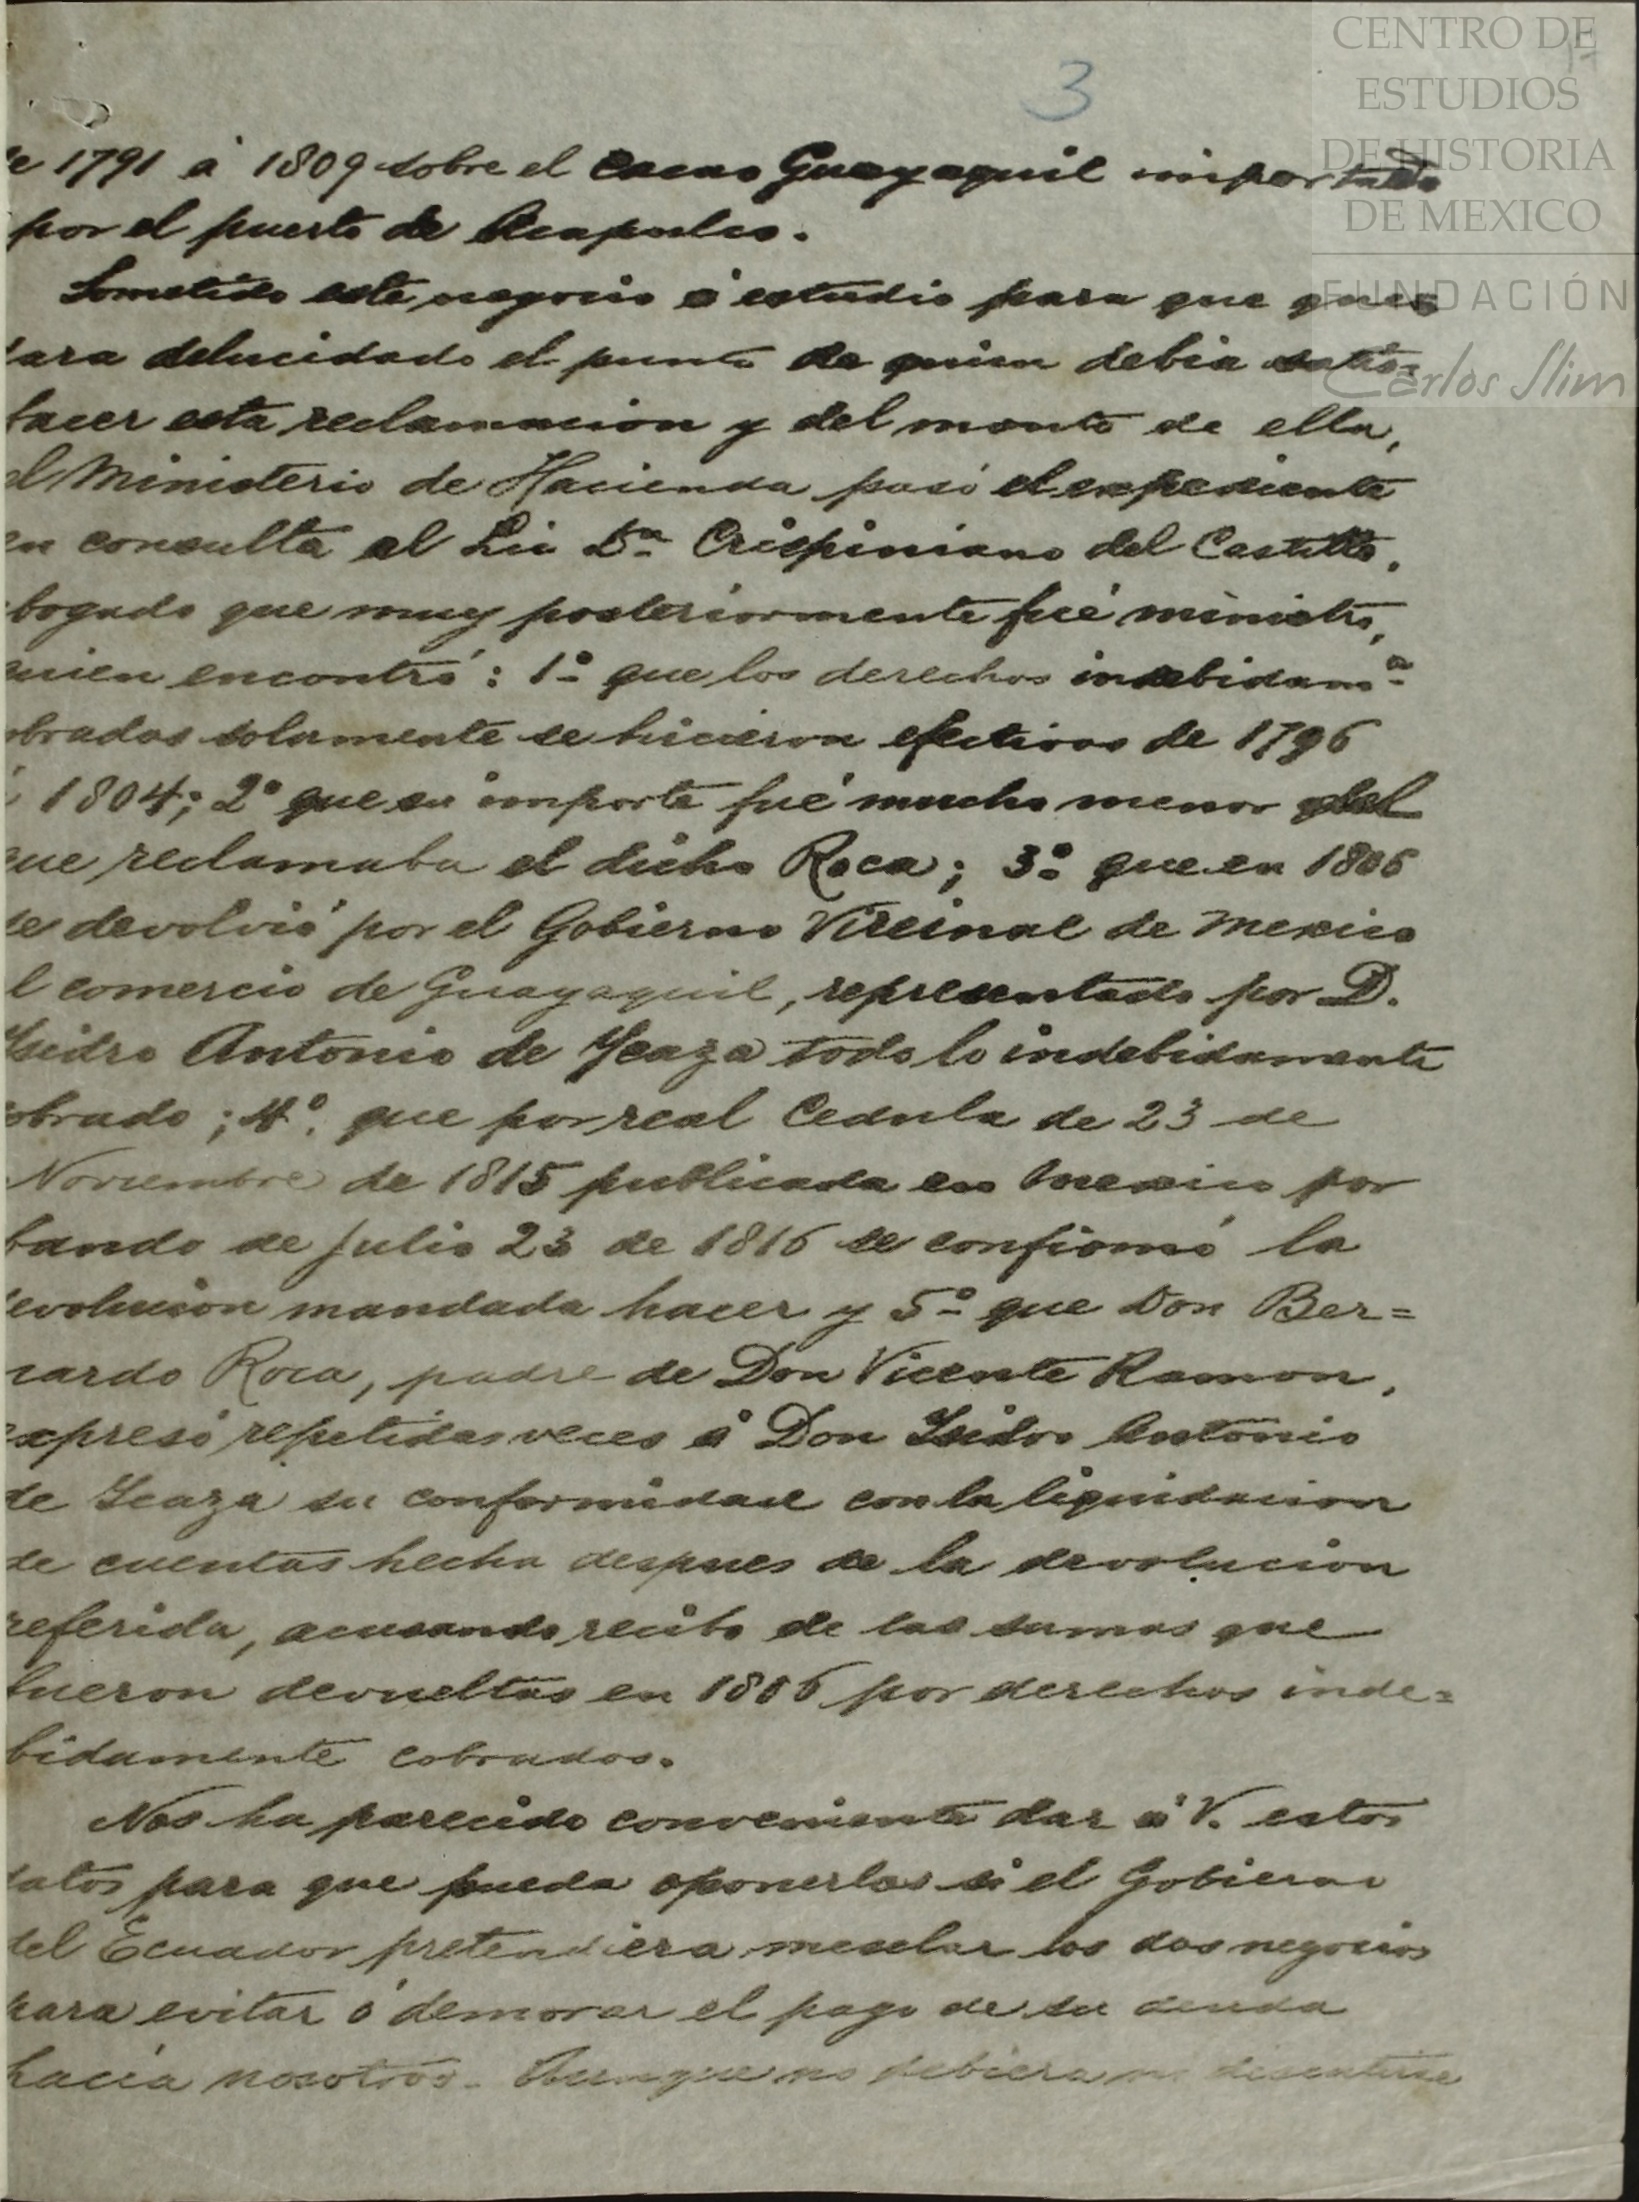 CENTRO DE
ESTUDIOS
DE HISTORIA
DE MEXICO
FUNDACIÓN
Carlos Slim
3
de 1791 á 1809 sobre el cacao Guayaquil importado
por el puerto de Acapulco.
Sometido este negocio á estudio para que que=
dara delucidado el punto de quien debia satis=
facer esta reclamacion y del monto de ella,
el Ministerio de Hacienda pasó el expediente
en consulta al Lic Dn Crispiniano del Castillo,
abogado que muy posteriormente fué ministro,
quien encontró: 1º que los derechos indebidamte
cobrados solamente se hicieron efectivos de 1796
á 1804; 2º que su importe fué mucho menor del
que reclamaba el dicho Roca; 3º que en 1806
se devolvió por el Gobierno Vireinal de Mexico
al comercio de Guayaquil, representado por D.
Ysidro Antonio de Ycaza todo lo indebidamente
cobrado; 4º. que por real Cedula de 23 de
Noviembre de 1815 publicada en Mexico por
bando de Julio 23 de 1816 se confirmó la
devolucion mandada hacer y 5º que Don Ber=
nardo Roca, padre de Don Vicente Ramon,
expresó repetidas veces á Don Ysidro Antonio
de Ycaza su conformidad con la liquidacion
de cuentas hecha despues de la devolucion
referida, acusando recibo de las sumas que
fueron devueltas en 1806 por derechos inde=
bidamente cobrados.
Nos ha parecido conveniente dar á V. estos
datos para que pueda oponerlos si el Gobierno
del Ecuador pretendiera mesclar los dos negocios
para evitar ó demorar el pago de su deuda
hacia nosotros. Aunque no debiera ni discutirse